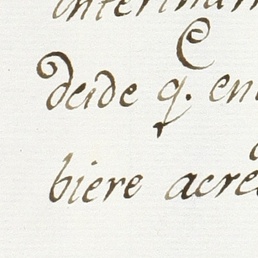 deide q. en
biere acre